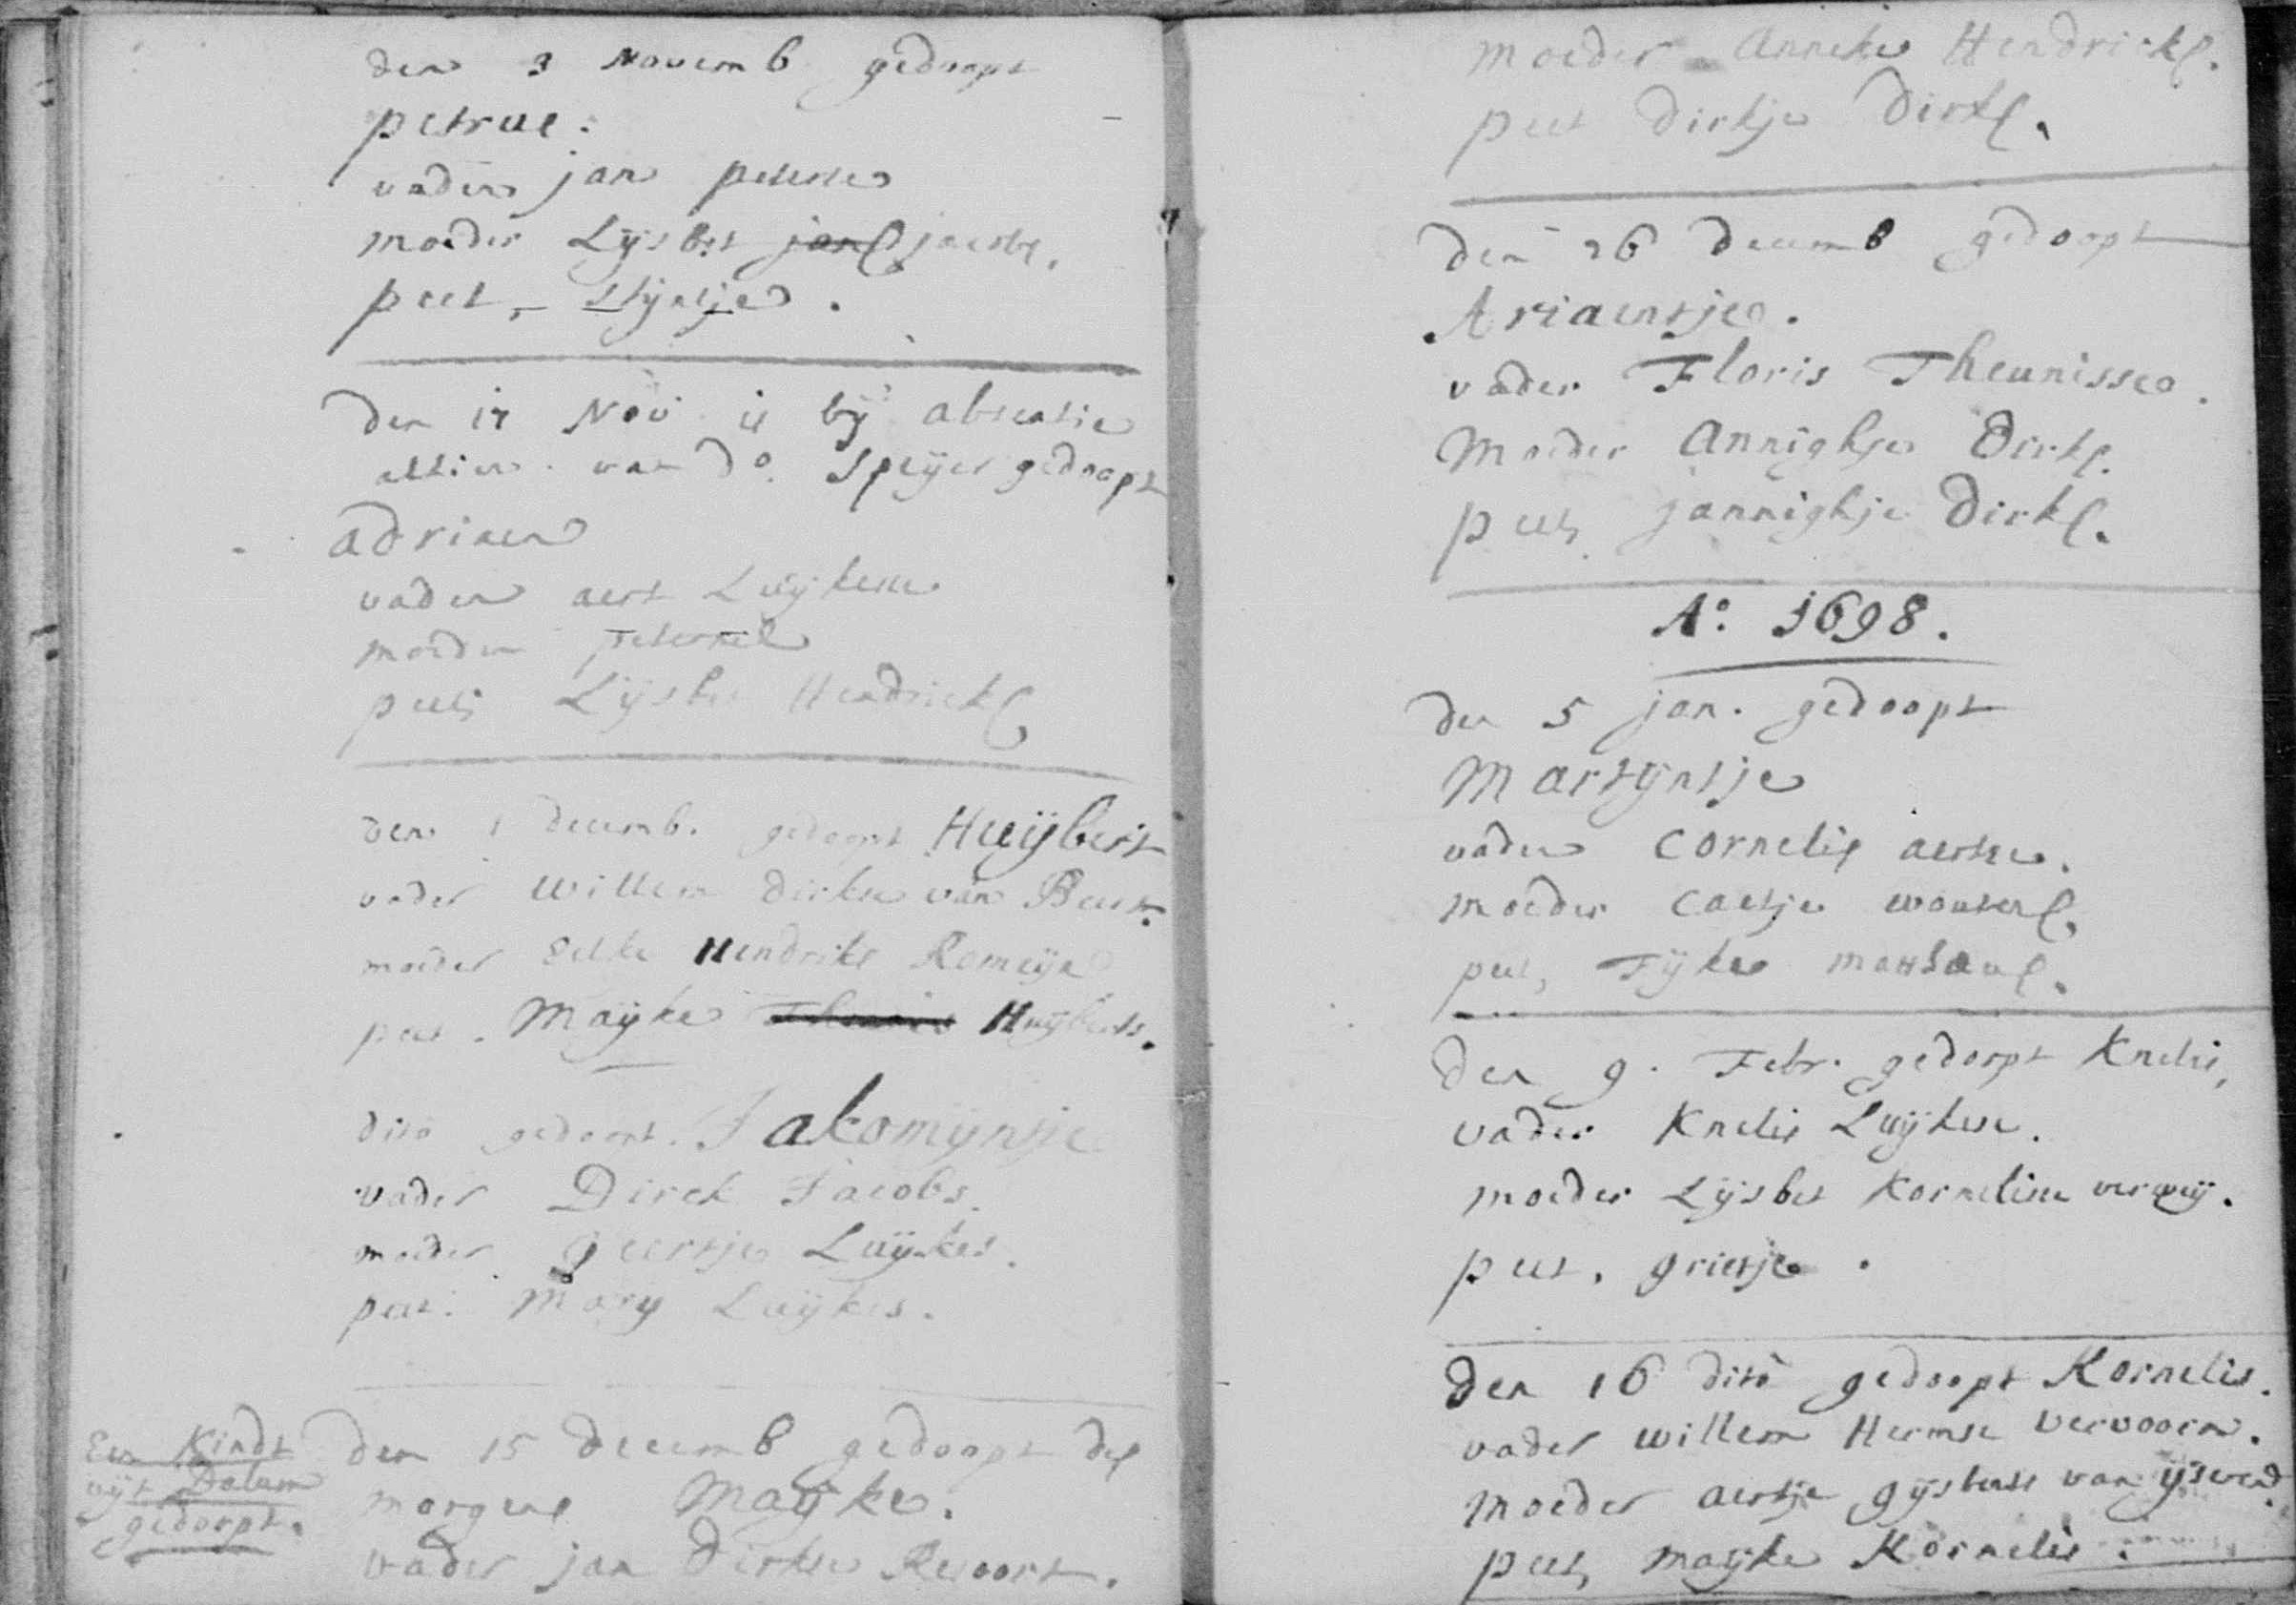 den 3 Novemb gedoopt
petrus.
vader jan peterse
moeder Lijsbet jans jacobs.
peet, Stijntje.
den 17 Nov is bij absentie
van do. Speijer gedoopt
adriaen
vader aert Luijkense
moeder peternel
peet, Lijsbet Hendricks
den 1 decemb. gedoopt Huijbert
vader Willem dirkse van Buer.
moeder Eelke Hendriks Romeijn
peet. Maijke Huijberts.
dito gedoopt. Jakomijntje
vader Dirck Jacobs.
moeder geertje Luijkes.
peet. Marij Luijkes.
Een Kindt
uijt Dalem
gedoopt.
den 15 decemb gedoopt des
morgens Maijke.
vader jan Dirkse Revoort.
moeder Anneke Hendricks.
peet dirkje dirks.
den 26 decemb gedoopt
Ariaentje.
vader Floris Theunisse.
Moeder Annighje dirks.
peet, jannighje Dirks.
Ao. 1698.
den 5 jan. gedoopt
Martijntje
vader Cornelis aertse.
moeder Caetje wouters.
peet, Fijke
den 9. Febr. gedoopt Knelis,
vader Knelis Luijkese.
moeder Lijsbet Kornelisse verweij.
peet, grietje.
den 16 dito gedoopt Kornelis.
vader willem Hermse vervoorn.
moeder aertje gijsberts van
peet, maijke Kornelis.